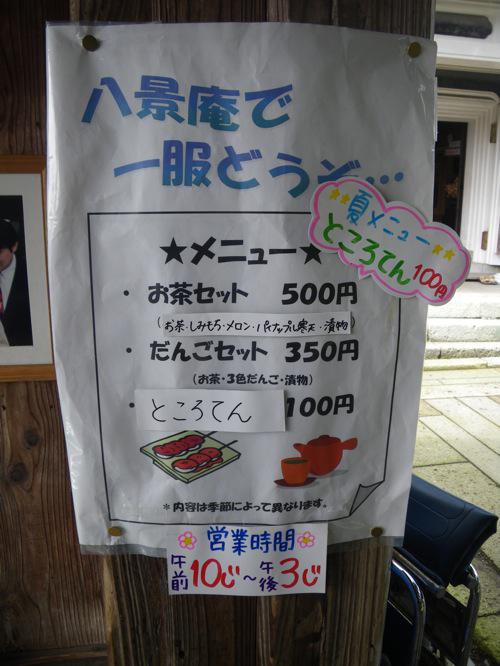 八景庵で
一服どうぞ…
★★夏メニュー★★
ところてん100円
★メニュー★
・お茶セット 500円
(お茶・しみもち・メロン・パイナップル寒天・漬物)
・だんごセット 350円
(お茶・3色だんご・漬物)
・ところてん 100円
＊内容は季節によって異なります。
営業時間
午前10じ～午後3じ